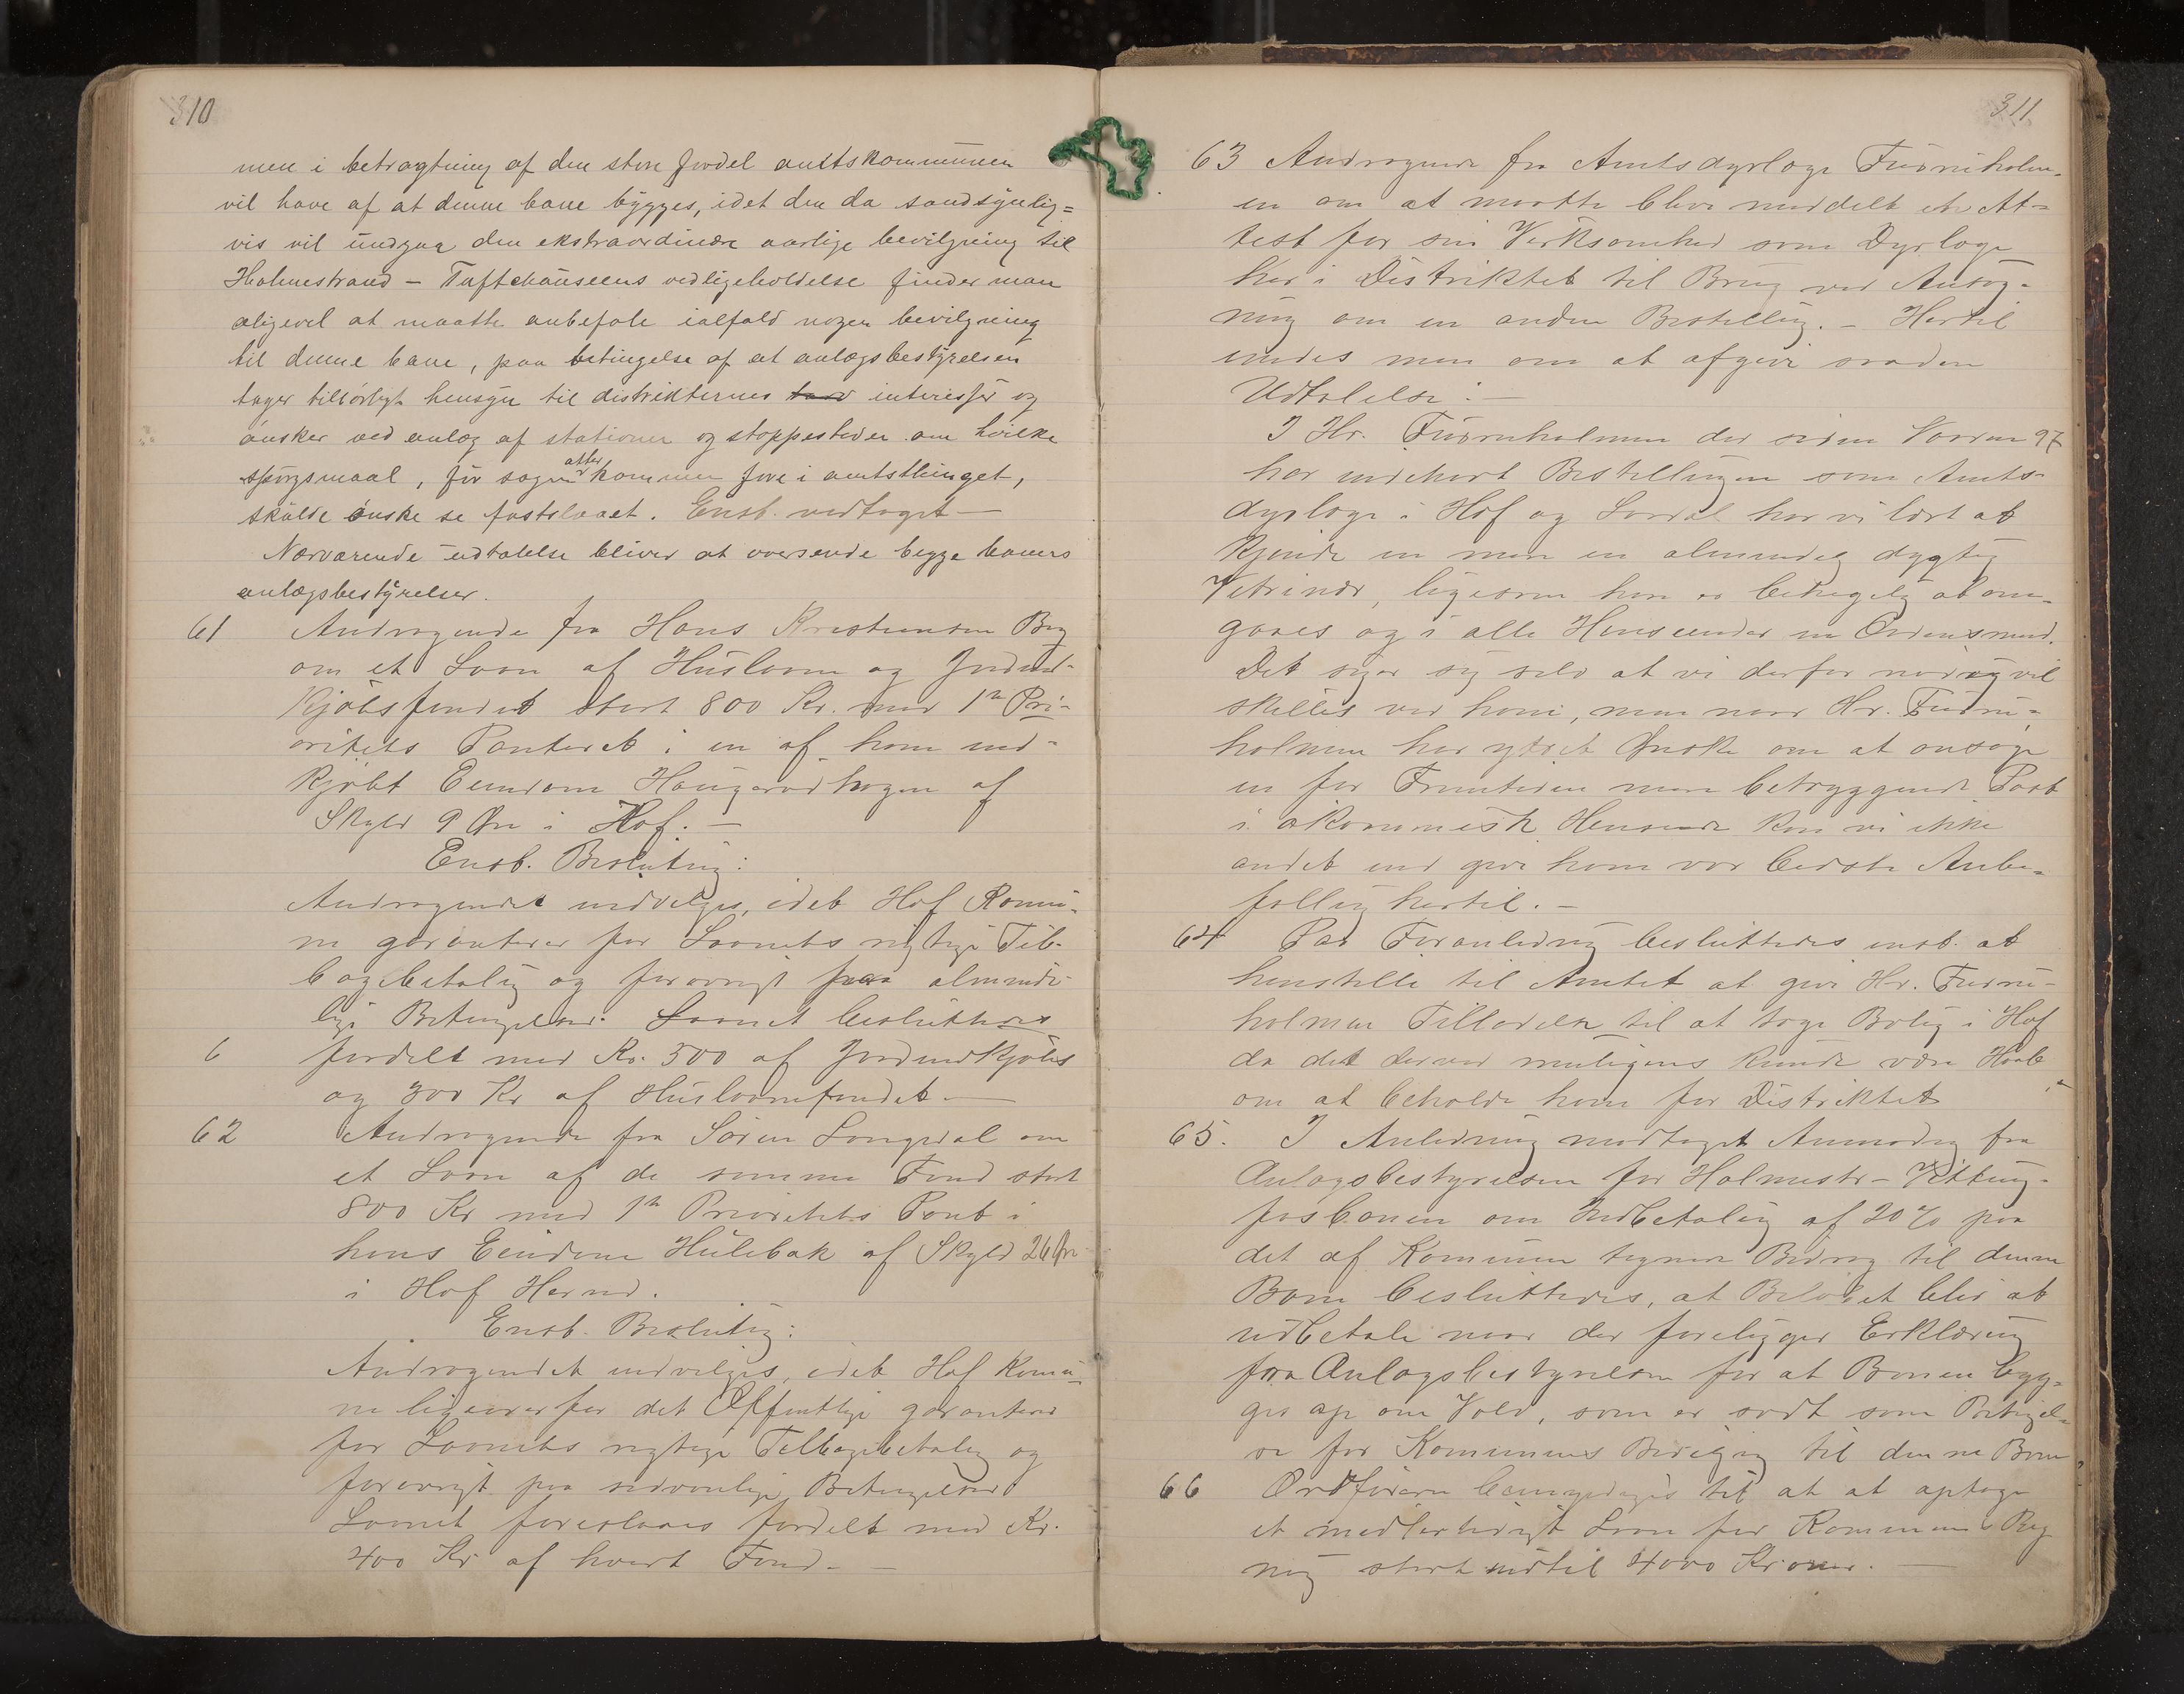 310
men i betragtning af den store fordel amtskommunen
vil have af at denne bane bygges, idet den da sandsynlig=
vis vil undgaa den ekstraordinære aarlige bevilgning til
Holmestrand - Tuftchauseens vedligeholdelse finder man
aligevel at maatte anbefale ialfald nogen bevilgning
til denne bane, paa betingelse af at anlægsbestyrelsen
tager tilbørligt hensyn til distrikternes interesser og
ønsker ved anlæg af stationer og stoppesteder om hvilke
spørgsmaal, før sagen atter kommer fore i amtsthinget,
skulde ønske se fastslaaet. Ensb. vedtaget —
Nærværende udtalelse bliver at oversende begge baners
anlægsbestyrelser.
61 Andragende fra Hans Kristensen Berg
om et Laan af Huslaan og Jordind-
kjøbsfondet stort 800 Kr. med 1ste Pri-
oritets Panteret i en af ham ind-
kjøbt Eiendom Haugerødhagen af
Skyld 9 Øre i Hof. —
Ensb. Beslutning:
Andragendet indvilges, idet Hof Kommu-
ne garanterer for Laanets rigtige Til-
bagebetaling og forøvrigt paa alminde-
lige Betingelser. Laanet besluttedes
6 fordelt med Kr. 500 af Jordindkjøbs
og 300 Kr af Huslaanefondet. —
62 Andragende fra Søren Langedal om
et Laan af de samme Fond stort
800 Kr med 1ste Prioritets Pant i
hans Eiendom Hulebak af Skyld 26 Øre
i Hof Herred.
Ensb. Beslutning:
Andragendet indvilges, idet Hof Kommu-
ne ligeoverfor det Offentlige garanterer
for Laanets rigtige Tilbagebetaling og
forøvrigt paa sædvanlige Betingelser
Laanet foreslaaes fordelt med Kr.
400 Kr af hvert Fond. —
311
63 Andragende fra Amtsdyrlæge Furuholm-
en om at maatte blive meddelt en At-
test for sin Virksomhed som Dyrlæge
her i Distriktet til Brug ved Ansøg-
ning om en anden Bestilling. - Hertil
enedes man om at afgive saadan
Udtalelse: —
I Hr. Furuholmen der siden Vaaren 97
har indehavt Bestillingen som Amts-
dyrlæge i Hof og Laardal har vi lært at
kjende en mere en almindelig dygtig
Vetrinær, ligesom han er behagelig at om-
gaaes og i alle Henseender en Ordensmand.
Det siger sig selv at vi derfor nødig vil
skilles ved ham, men naar Hr. Furu-
holmen har ytret Ønske om at ansøge
en for Fremtiden mere betryggende Post
i økonomisk Henseende kan vi ikke
andet end give ham vor bedste Anbe-
falling hertil. —
64 Paa Foranledning besluttedes ensb. at
henstille til Amtet at give Hr. Furu-
holmen Tilladelse til at tage Bolig i Hof
da det derved muligens kunde være Haab
om at beholde ham for Distriktet
65. I Anledning modtaget Anmodning fra
Anlægsbestyrelsen for Holmestr - Vitting-
fosbanen om Indbetaling af 20% paa
det af Kommunen tegnede Bidrag til denne
Bane besluttedes, at Beløbet blir at
udbetale naar der foreligger Erklæring
fra Anlægsbestyrelsen for at Banen byg-
ges op om Vold, som er sadt som Betingel-
se for Kommunens Bevilgning til denne Bane
66 Ordføreren bemyndiges til at at optage
et midlertidigt Laan for Kommunens Reg
ning stort indtil 4000 Kroner. —